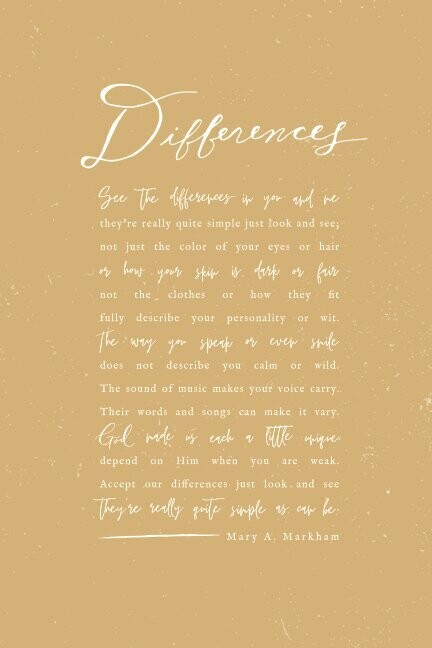 Differences
See the differences in you and me
they're really quite simple just look and see;
not just the color of your eyes or hair
or how your skin is dark or fair
not the clothes or how they fit
fully describe your personality or wit.
The way you speak or even smile
does not describe you calm or wild.
The sound of music makes your voice carry.
Their words and songs can make it vary.
God made us each a little unique
depend on Him when you are weak.
Accept our differences just look and see
they're really quite simple as can be.
Mary A. Markham